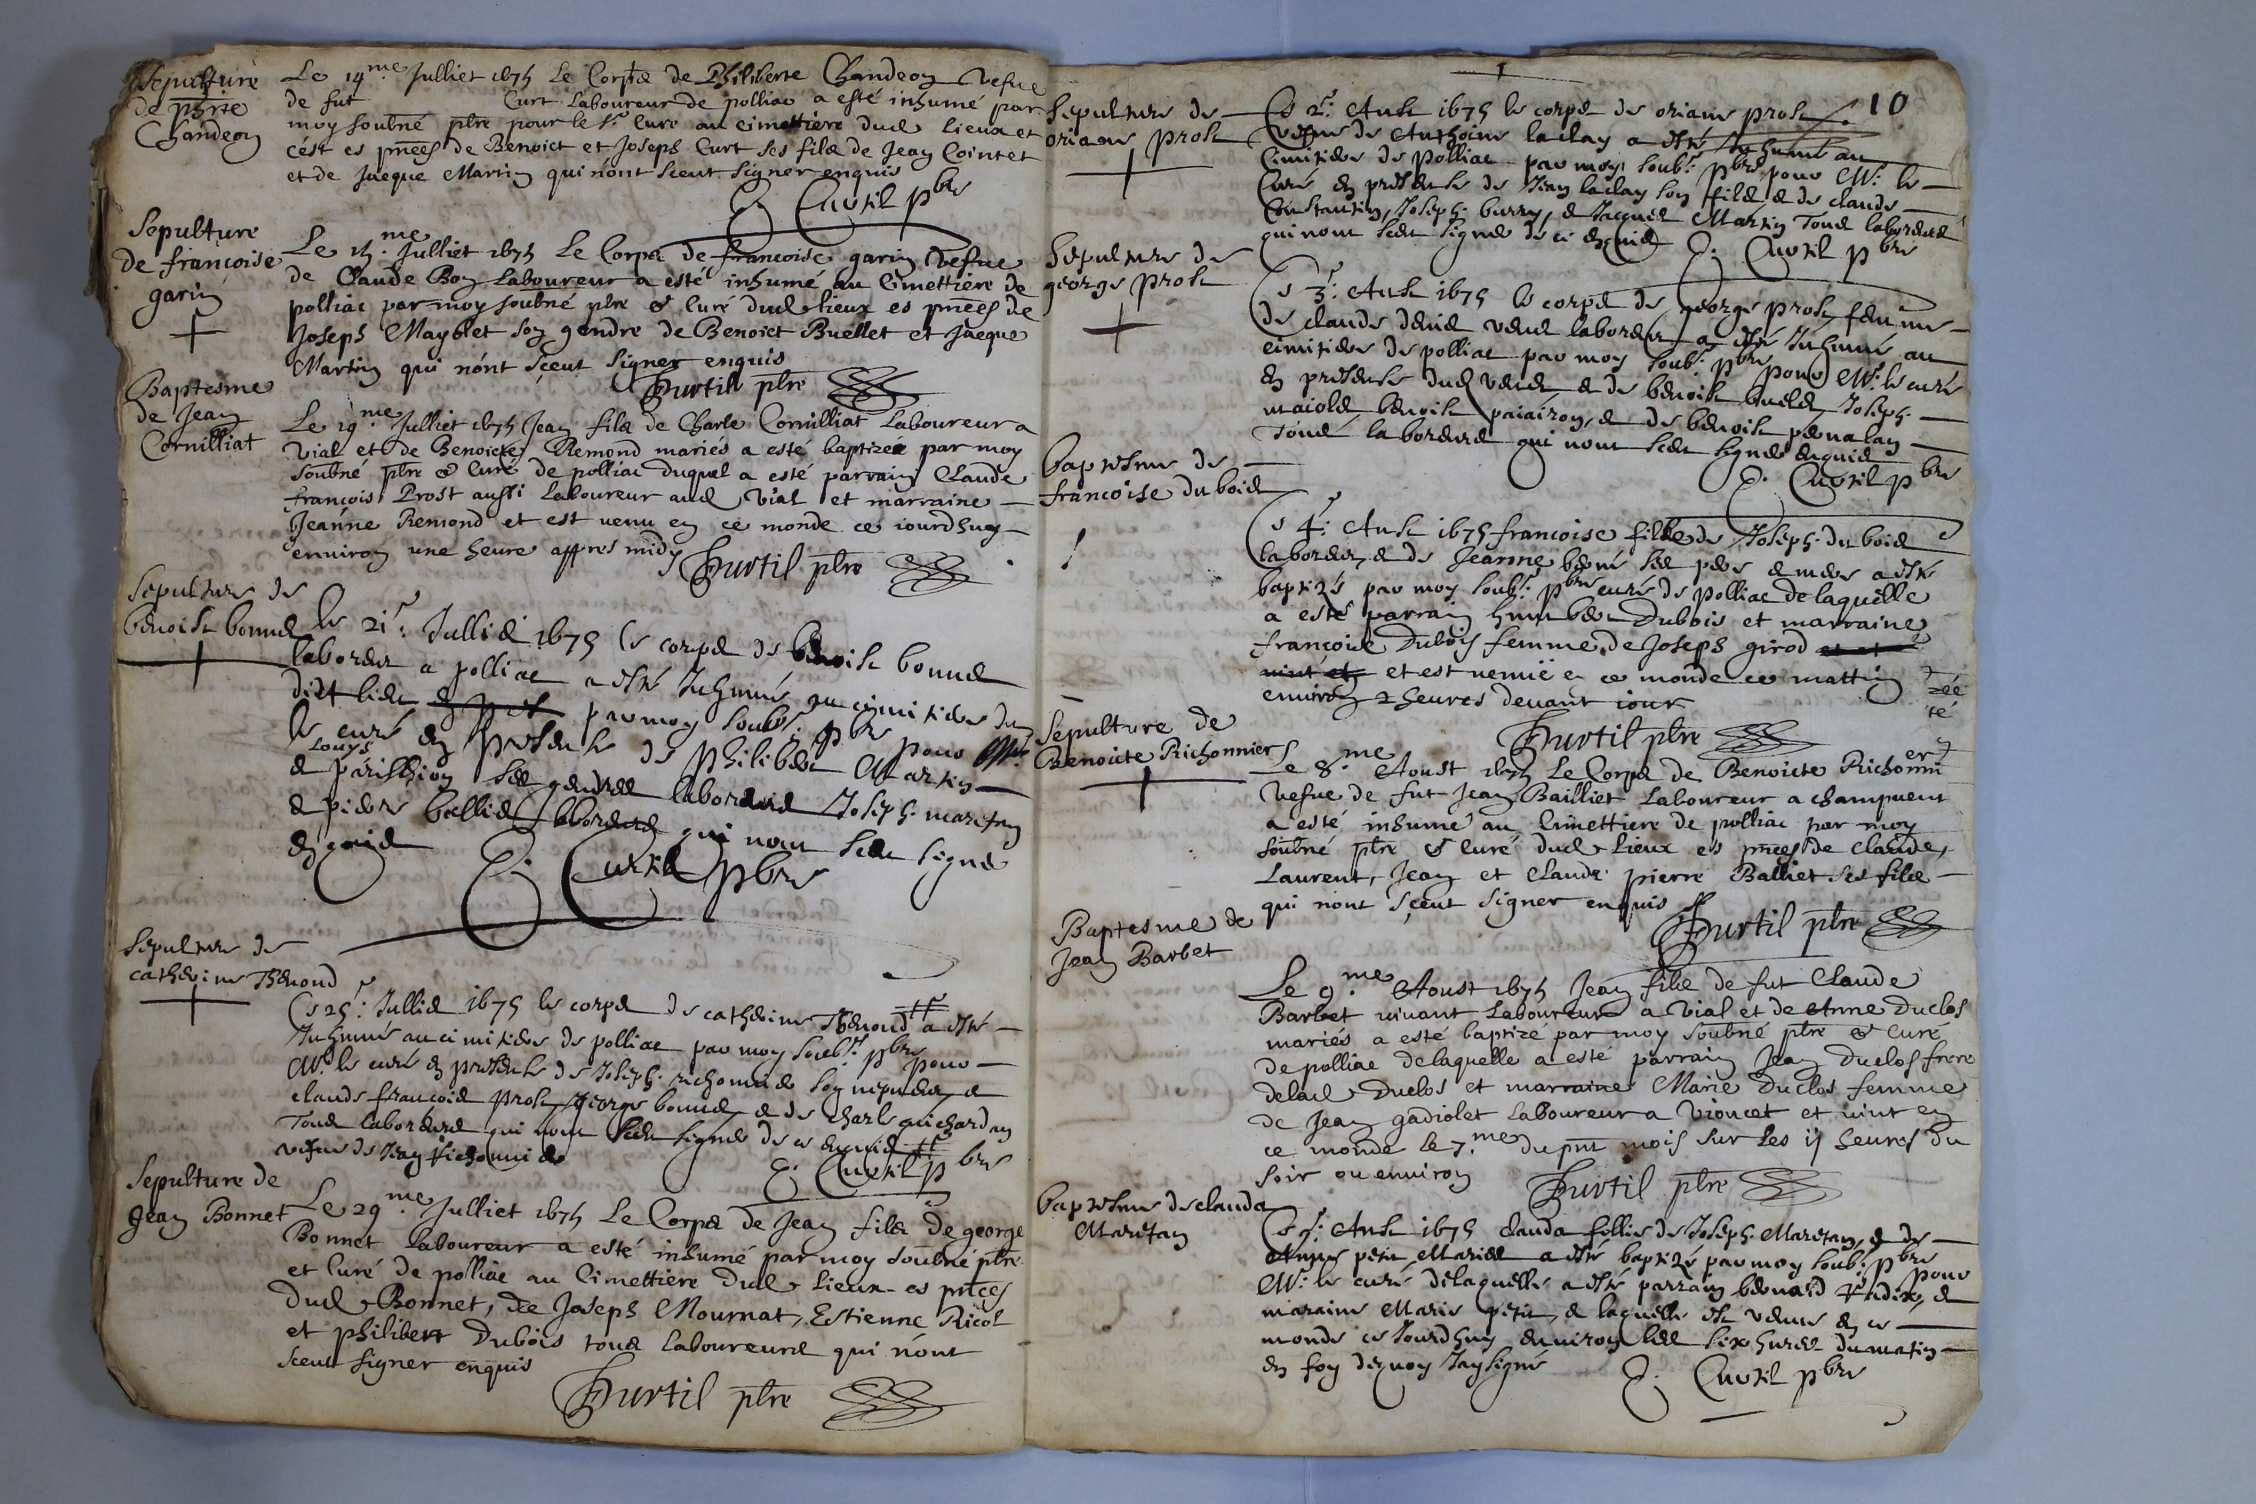 Sepulture
de phrte
Chandeon
Le 14me Julliet 1675 Le Corps de Philiberte Chandeon vefue
de fut Curt Laboureur de polliac a esté inhumé par
moy soubné ptre pour le sr Curé au cimettiere dud lieux et
cést es pnces de Benoict et Joseph Curt ses fils de Jean Cointet
et de Jaeque Martin qui nónt sceut signer enquis
C. Curtil pbre
Sepulture
de françoise
garin
Le 15.me Julliet 1675 Le Corps de francoise garin vefue
de Claude Boy Laboureur a esté inhumé au Cimettiere de
polliac par moy soubné ptre & Curé dud lieux es pnces de
Joseph Mayblet son gendre de Benoict Buellet et Jaeque
Martin qui nónt sçeut signer enquis
Curtil ptre
Baptesme
de Jean
Cornilliat
Le 19.me Julliet 1675 Jean fils de Charle Cornilliat Laboureur a
Vial et de Benoicte Remond mariés a esté baptizée par moy
soubné ptre & Curé de polliac duquel a esté parrain Claude
françois Prost aussi Laboureur aud Vial et marraine
Jeanne Remond et est venu en ce monde ce iourdhuy
environ une heure appres midy
Curtil ptre
Sepulture de
benoist bonnet
le 21e. Jullie 1675 le corps de benoist bonnet
laboreur a polliac a esté Inhumé au cimitiere du
dict lieu par moy soubr. pbre pour Mr.
le curé en presence de philibert Martin
Louys
& parisshion ses gendres laboreurs Joseph maretan
& piere ballie laboreurs qui nont sceu signe
enquis
C. Curtil pbre
Sepulture de
catherine Thenond
Le 25e. Jullie 1675 le corps de catherine Thenond a esté
Inhumé au cimitiere de polliac par moy soubr. pbre pour
Mr. le curé en presence de Joseph richonnie son nepueu, &
claude francois prost, george bonnet, & de Charle guichardan
Tous laboreurs qui nont sceu signe de ce enquis
vefue de Jean richonnie
C. Curtil pbre
Sepulture de
Jean Bonnet
Le 29.me Julliet 1675 Le Corps de Jean fils de george
Bonnet Laboureur a esté inhumé par moy soubné ptre
et Curé de polliac au Cimettiere dud Lieux es pnces
dud Bonnet, de Joseph Mournat, Estienne Ricol
et philibert Dubois tous Laboureurs qui nónt
sceut signer enquis
Curtil ptre
10
Sepulture de
oriane prost
Le 2e. Aust 1675 le corps de oriane prost
vefue de Anthoine laclay a esté Inhumé au
Cimitiere de Polliac par moy soubr. pbre pour Mr. le
Curé en presence de Jean laclay son fils & de claude
Constantin, Joseph burry, & Jacques Martin Tous laboreurs
qui nont sceu signe de ce enquis
C. Curtil pbre
Sepulture de
george prost
Le 3e. Aust 1675 le corps de george prost femme
de claude vieu laboreur a esté Inhumé au
cimitiere de polliac par moy soubr. pbre pour Mr. le curé
en presence dud & de benoist buelet Joseph
maiolet benoist & de benoist
Tous laboreurs qui nont sceu signe enquis
C. Curtil pbre
baptesme de
francoise du bois
Le 4e. Aust 1675 francoise fille de Joseph du bois
laboreur, & de Jeanne ses pere & mere a esté
baptizé par moy soubr. pbre curé de polliac de laquelle
a esté parrain humber Dubois et marraine
francoise Dubois femme de Joseph girod
et est venuë en ce monde ce mattin
environ 2 heures devant iour
Curtil ptre
Sepulture de
Benoicte Richonnier
Le 8.me Aoust 1675 Le Corps de Benoicte Richonnier
vefue de fut Jean Bailliet Laboureur a champvent
a esté inhumé au Cimettiere de polliac par moy
soubné ptre & Curé dud Lieux es pnces de Claude,
Laurent, Jean et Claude pierre Balliet ses fils
qui nónt sçeut signer enquis
Curtil ptre
Baptesme de
Jean Barbet
Le 9.me Aoust 1675 Jean fils de fut Claude
Barbet vivant Laboureur a Vial et de Anne Duclos
mariés a esté baptizé par moy soubné ptre & Curé
de polliac delaquelle a esté parrain Jean Duclos frere
delad Duclos et marraine Marie Duclos femme
de Jean gadiolet Laboureur a Vioncet et vint en
ce monde le 7.me du pnt mois sur les ij heures du
soir ou environ
Curtil ptre
baptesme de clauda
Maretan
Aust 1675 clauda fillie de Joseph Maretan, & de
Anne petit Maries a esté baptizé par moy soubr. pbre pour
Mr. le curé delaquelle a esté parrain &
maraine Marie petit, & laquelle est venue en ce
monde ce Jourdhuy environ les six hures du matin
en foy dequoy Jay signé
C. Curtil pbre